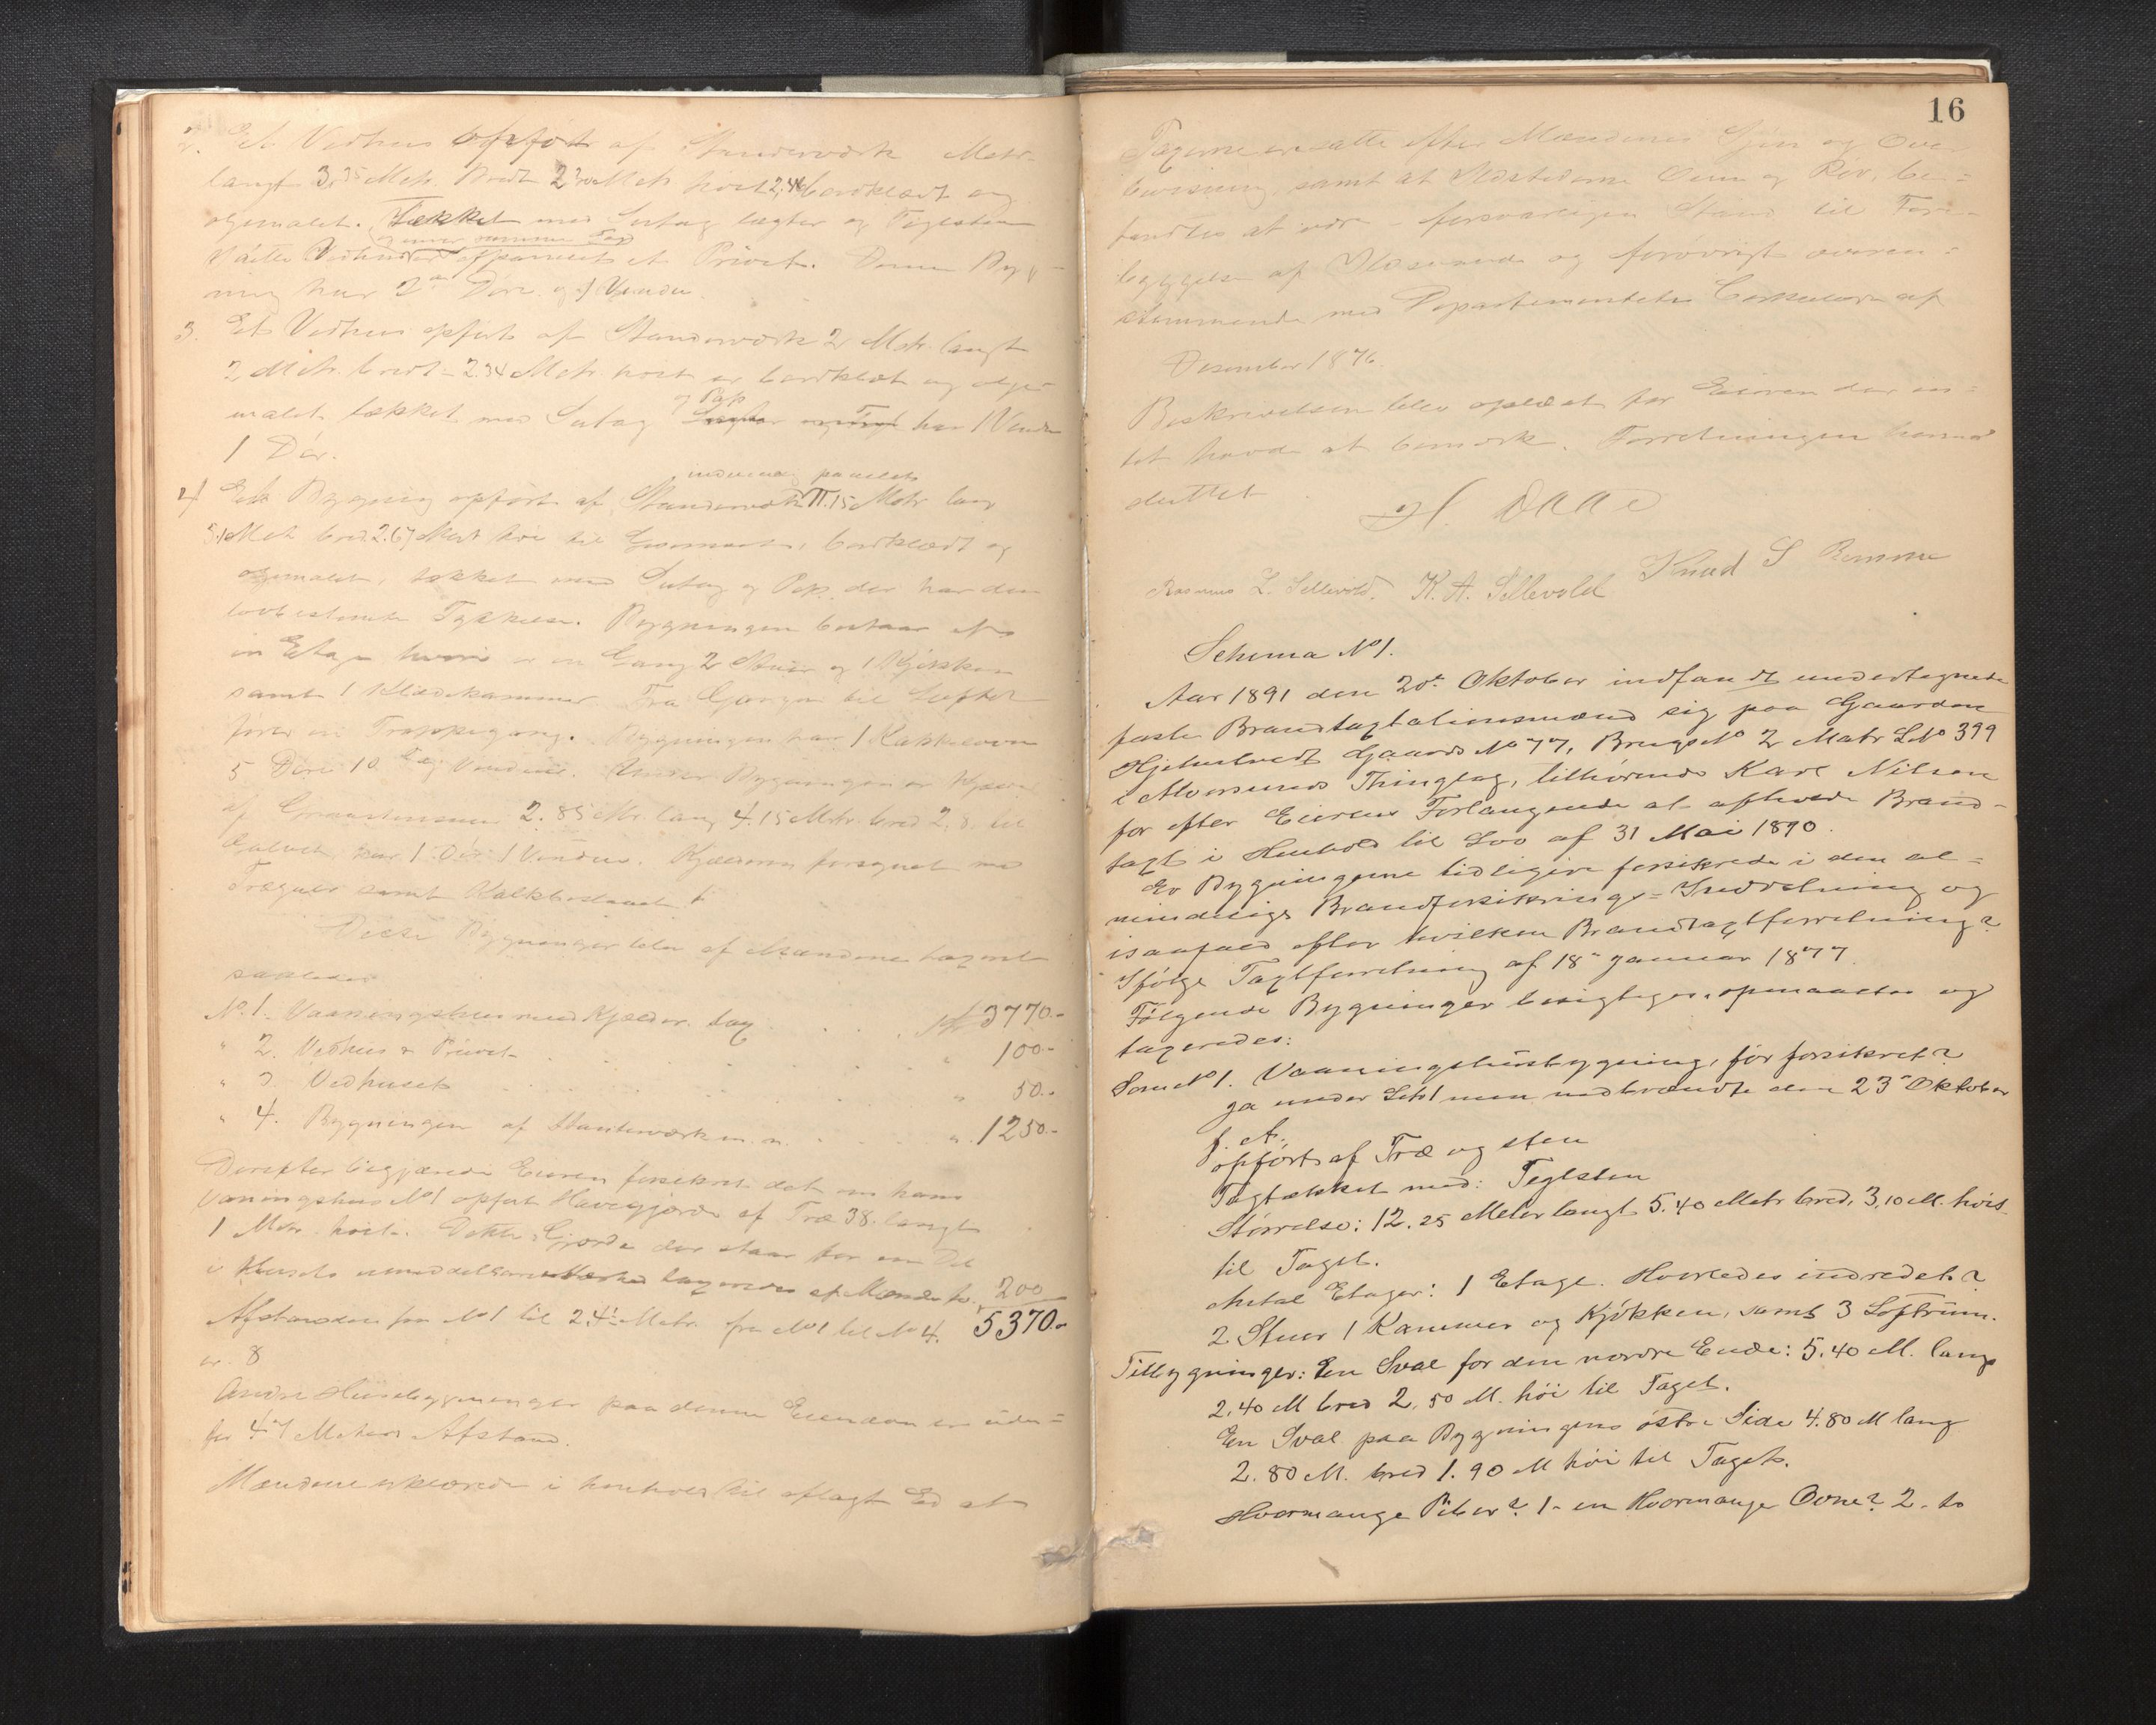 2. Et Vedhus opført af Standerværk Metr
langt 3.35 Metr. bredt 2.30 Metr høit 2,44 bordklædt og
oljemalet. Tækket med Sutag lægter og Teglsten
under samme Tag
I dette Vedhus er afpanelet et Privet. Denne Byg-
ning har 2de Døre og 1 Vindu.
3. Et Vedhus opført af Standerværk 2 Metr. langt
2 Metr. bredt 2.34 Metr. høit er bordklædt og olje-
og Pap
malet tækket med Sutag har 1 Vindu
1 Dør.
indvendig panelet
4 En Bygning opført af Standerværk 11.15 Metr lang
5.10 Metr bred 2.67 Metr høi til Gesimsen, bordklædt og
oljemalet, tækket med Sutag og Pap, der har den
lovbestemte Tykkelse. Bygningen bestaar af
en Etage hvori er en Gang 2 Stuer og 1 Kjøkken
samt 1 Klædekammer Fra Gangen til Loftet
fører en Trappegang. Bygningen har 1 Kakkelovn
5 Døre 10 Vinduer. Under Bygningen er Kjælder
af Graastensmur 2.85 Mtr. lang 4.15 Mtr. bred 2.8. til
Gulvet, har 1 Dør 1 Vindue. Kjælderen forsynet med
Trægulv samt Kalkbeslaaet
Disse Bygninger blev af Mændene taxeret
saaledes
No. 1. Vaaningshus med Kjælder. tax Kr 3770.-
" 2. Vedhus & Privet " 100.-
" 3. Vedhuset " 50.-
" 4. Bygningen af Standerværk m. m. " 1250.-
Derefter begjærede Eieren forsikret det om hans
Vaaningshus No 1 opført Havegjærde af Træ 38. langt
1 Metr. høit. Dette Gjærde der staar for en Del
i Husets umiddelbare Nærhed taxeredes af Mændene kr. 200
Afstanden fra No 1 til 2 4½ Metr. fra No 1 til No 4. 5370.-
er. 8
Andre Husebygninger paa denne Eiendom er uden-
for 47 Meters Afstand.
Mændene erklærede i henhold til aflagt Ed at
16
Taxterne ere satte efter Mændenes Skjøn og Over
bevisning, samt at Ildstederne Ovne og Rør, be-
fandtes at være i forsvarligen Stand til Fore-
byggelse af Ildsvaade og forøvrigt overens-
stemmende med Departementets Cirkulære af
Desember 1876.
Beskrivelsen blev oplæst for Eieren der in-
tet havde at bemærke. Forretningen hermed
sluttet
H. Daae
Rasmus L. Sellevold. K. A. Sellevold Knud S Remme
Schema No 1.
Aar 1891 den 20de Oktober indfandt undertegnede
faste Brandtaxtationsmænd sig paa Gaarden
Hjelmtvedt Gaards No 77, Brugs No 2 Matr LNo 399
i Alversunds Thinglag, tilhørende Karl Nilsen
for efter Eierens Forlangende at afholde Brand-
taxt i Henhold til Lov af 31 Mai 1890.
Er Bygningerne tidligere forsikrede i den al-
mindelige Brandforsikrings-Indretning og
isaafald efter hvilken Brandtaxtforretning?
Ifølge Taxtforretning af 18de Januar 1877.
Følgende Bygninger besigtiges, opmaaltes og
taxeredes:
Som No 1. Vaaningshusbygning, før forsikret?
Ja under Lit 1 men nedbrændte den 23de Oktober
f. A.
Opført af Træ og sten
Tagtækket med: Teglsten
Størrelse: 12.25 Meter langt 5.40 Metr bred, 3,10 M. høit
til Taget.
Antal Etager: 1 Etage. Hvorledes indredet?
2 Stuer 1 Kammer og Kjøkken, samt 3 Loftrum.
Tilbygninger: En Sval for den nordre Ende: 5.40 M. lang
2.40 M bred 2.50 M. høi til Taget.
En Sval paa Bygningens østre Side 4.80 M lang
2.80 M. bred 1.90 M høi til Taget.
Hvormange Piber? 1 - en Hvormange Ovne? 2 - to